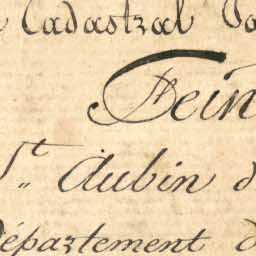 Cadastral
Fein
St. Aubin d
Département d